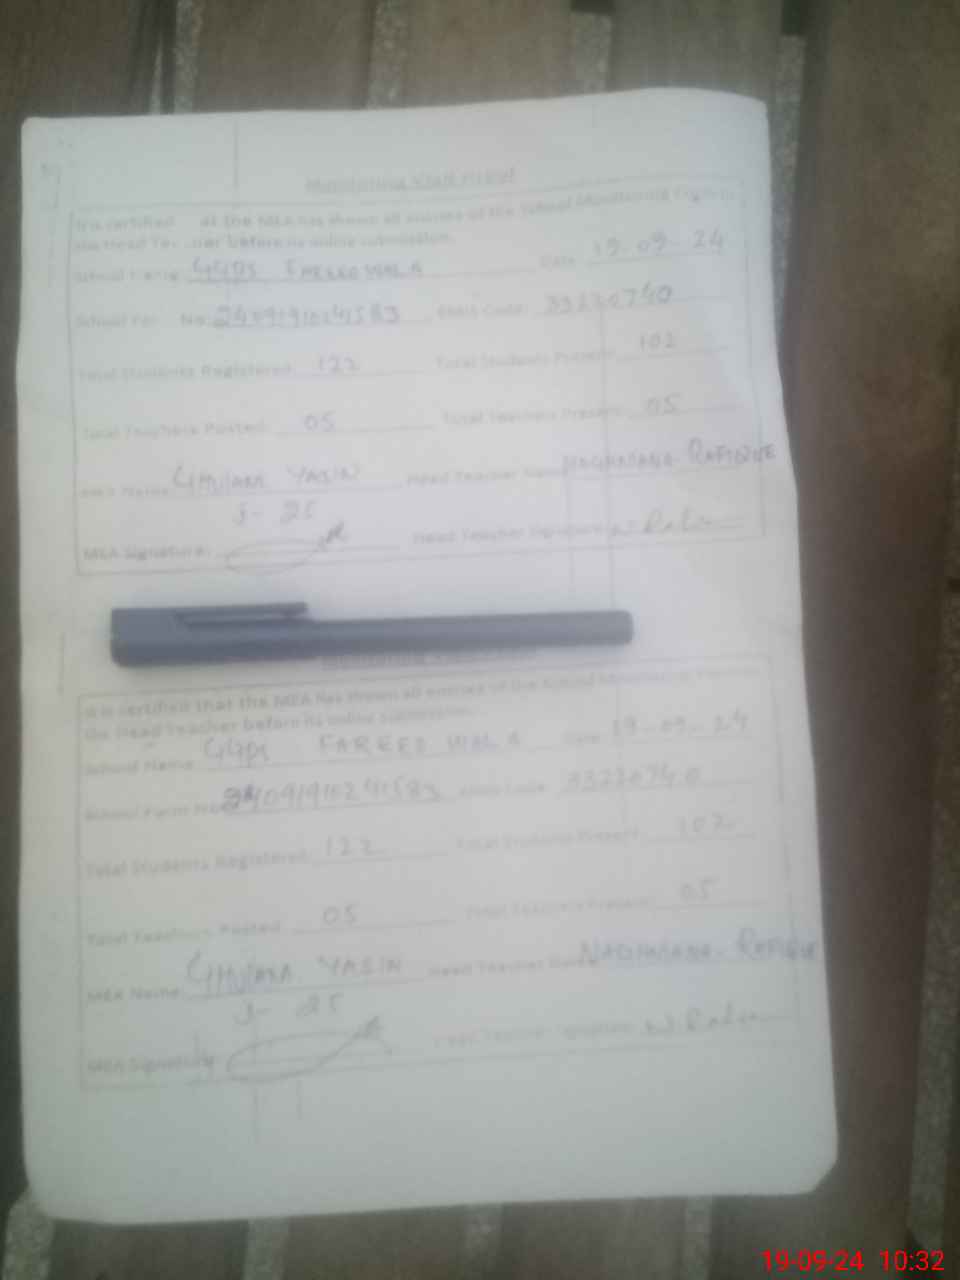 Monitoring Visit Proof
It is certified at the MEA has shown all entries of the School Monitoring
the Head Teacher before its online submission.
School Name: GGPS FAREED WALA Date: 19-09-24
School For No: EMIS Code: 33230740
Total Students Registered: 122 Total Students Present: 102
Total Teachers Posted: 05 Total Teachers Present: 05
MEA Name: YASIN Head Teacher Name: RAFIQUE
J- 25
MEA Signature: Head Teacher Signature:
It is certified that the MEA has shown all entries of the School Monitoring
the Head Teacher before its online submission.
School Name: GGPS FAREED WALA Date: 19-09-24
School Form No: EMIS Code: 33230740
Total Students Registered: 122 Total Students Present: 102
Total Teachers Posted: 05 Total Teachers Present: 05
MEA Name: YASIN Head Teacher Name: RAFIQUE
J- 25
MEA Signature: Head Teacher Signature:
19-09-24 10:32